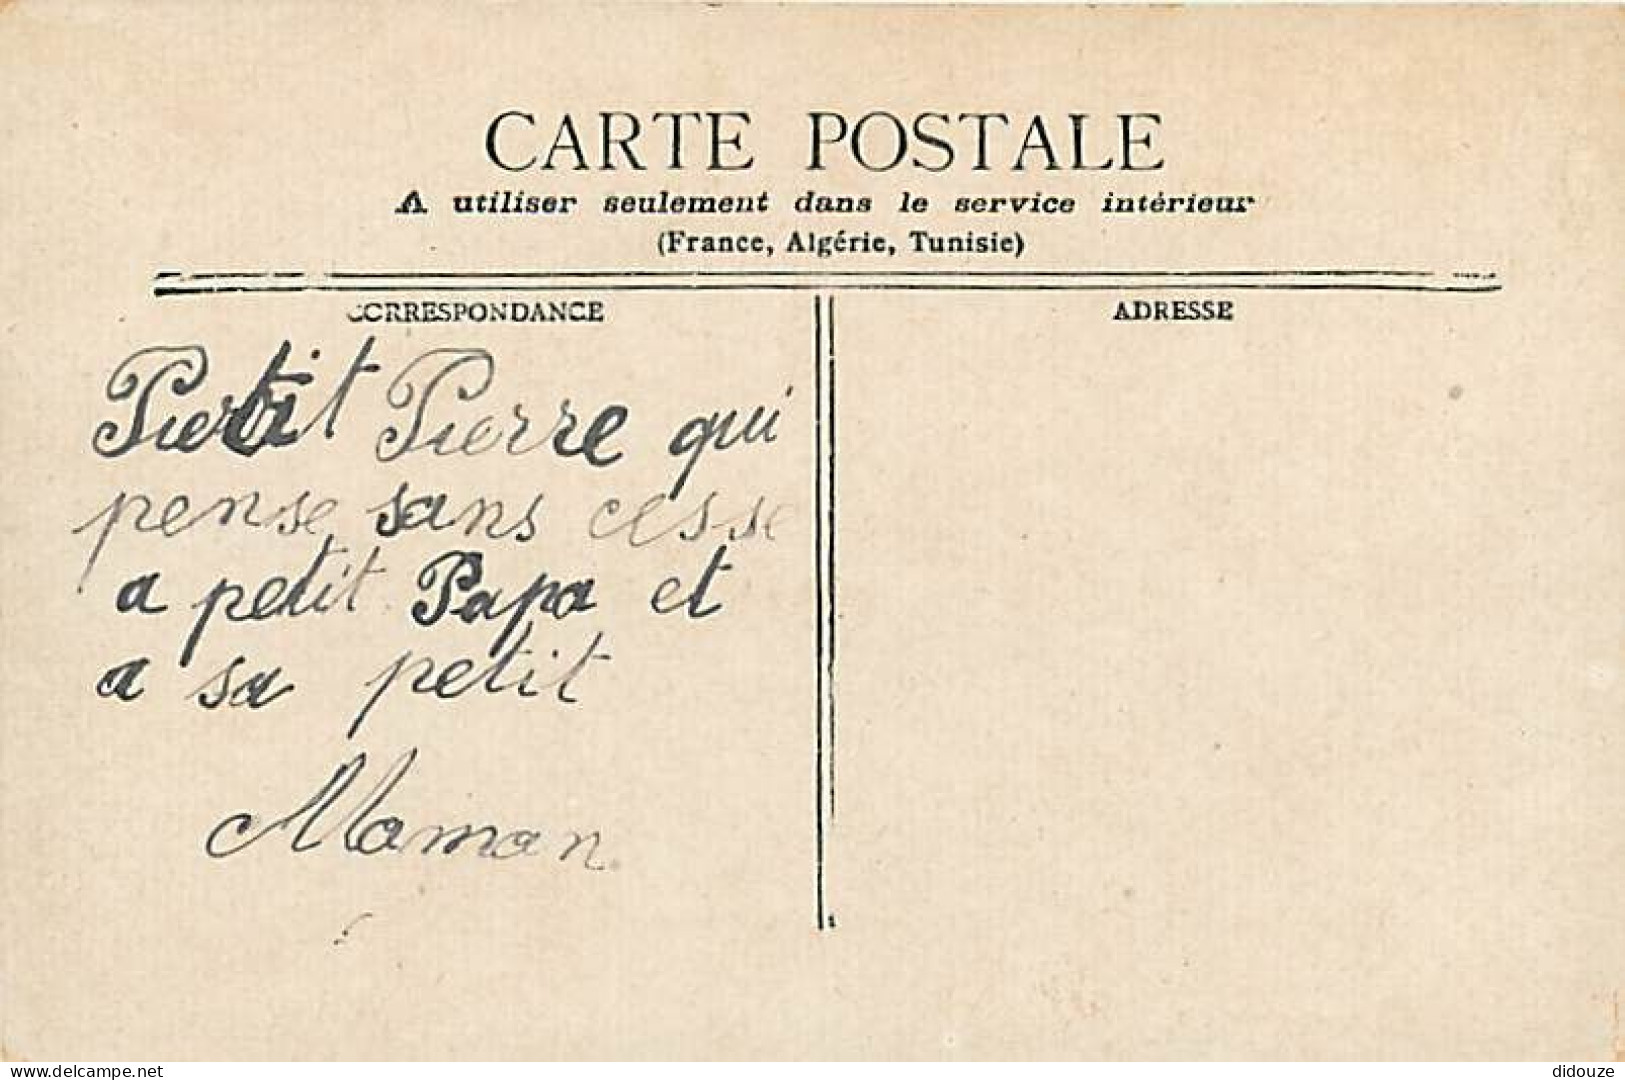 CARTE POSTALE
A utiliser seulement dans le service intérieur
(France, Algérie, Tunisie)
CORRESPONDANCE
ADRESSE
Petit Pierre qui
pense sans cesse
a petit Papa et
a sa petit
Maman
delcampe.net
didouze